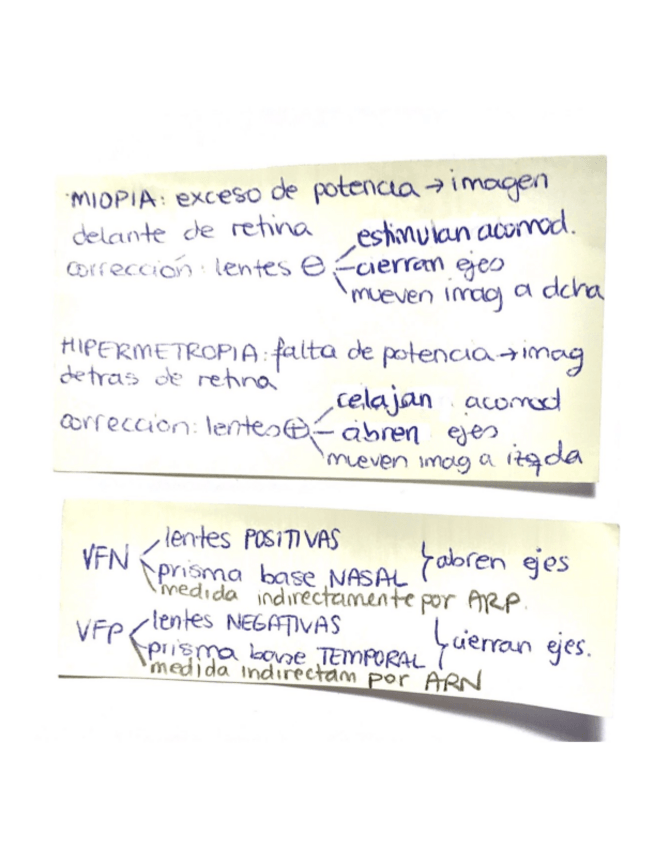 MIOPIA: exceso de potencia → imagen
delante de retina
corrección: lentes ⊖
estimulan acomod.
cierran ejes
mueven imag a dcha
HIPERMETROPIA: falta de potencia → imag
detras de retina
correccion: lentes ⊕
celajan acomod
abren ejes
mueven imag a izqda
VFN
lentes POSITIVAS
prisma base NASAL
abren ejes
medida indirectamente por ARP.
VFP
lentes NEGATIVAS
prisma base TEMPORAL
cierran ejes.
medida indirectam por ARN